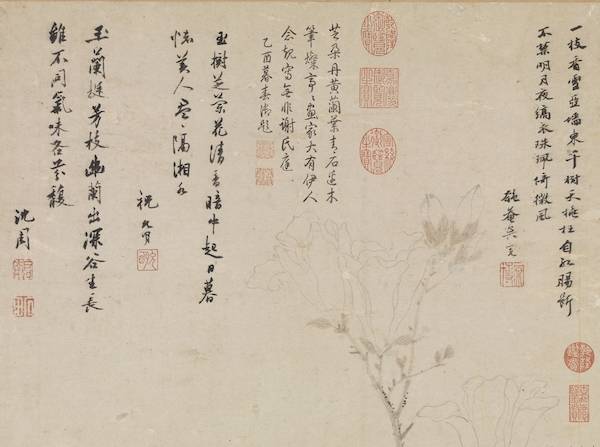 一枝香雪亞墻東千樹夭桃枉自紅腸斷
不禁明月夜縞衣珠珮倚微風
匏菴吳寬
芝朵丹黃蘭葉青石邊木
筆燦亭〻畫家大有伊人
念貌寫無非謝氏庭
乙酉暮春御題
玉樹芝花清香暗中起日暮
懷美人盈〻隔湘水
祝允明
玉蘭挺芳枝幽蘭出深谷生長
雖不同氣味各芬馥
沈周